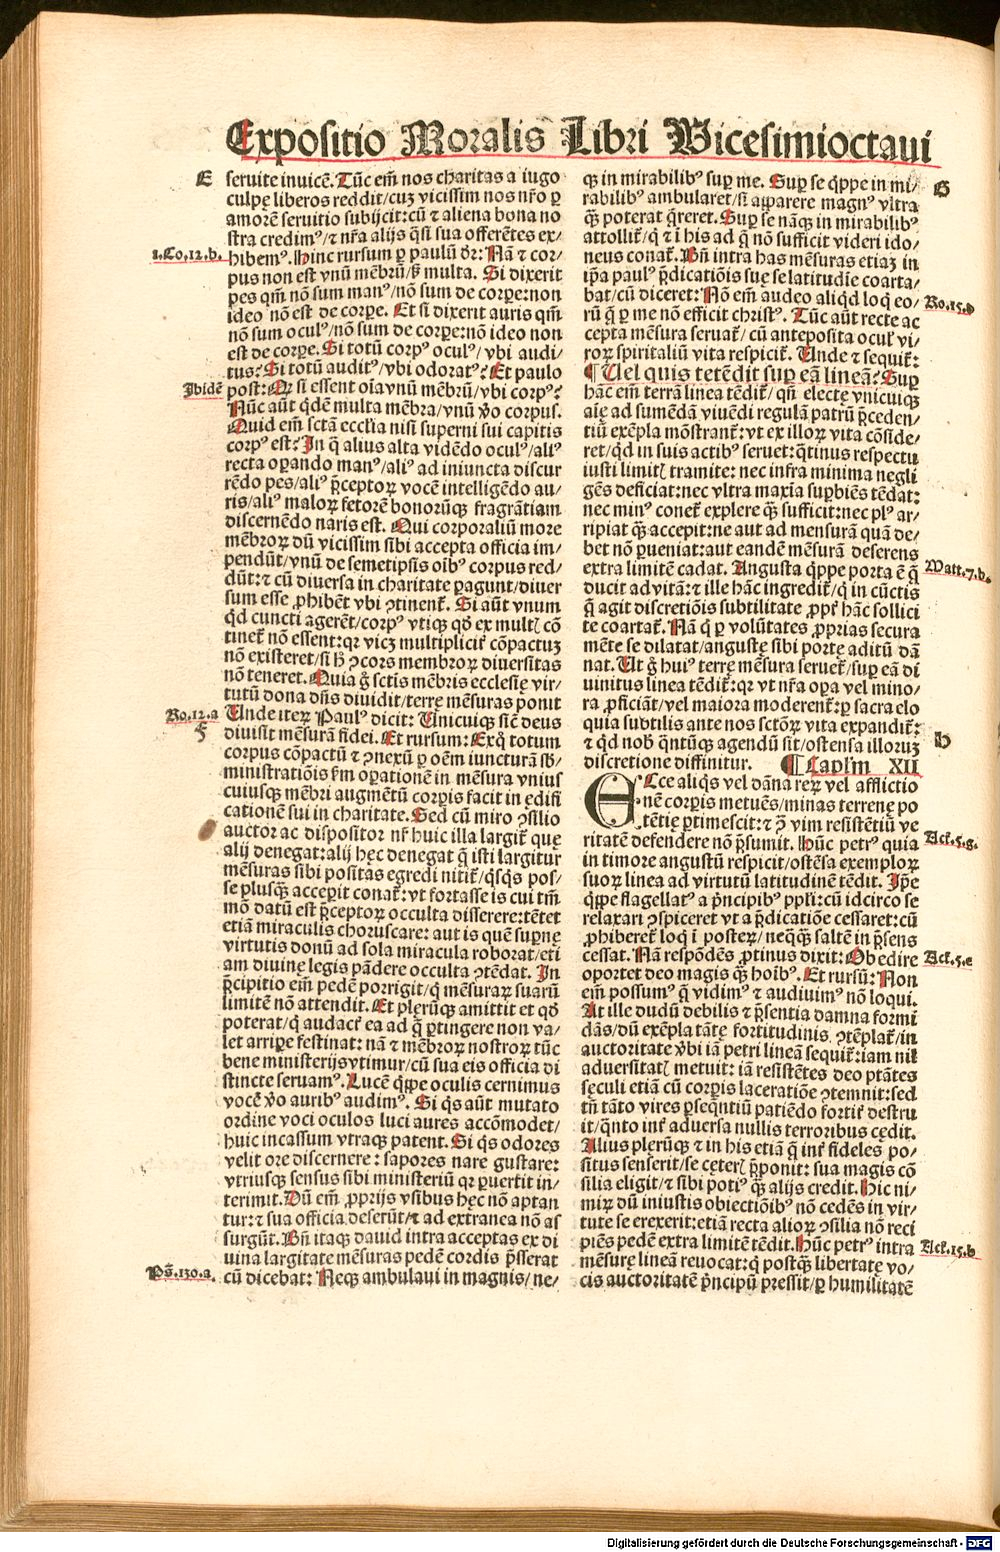 Expositio Moralis Libri Vicesimioctaui
E
seruite inuicẽ. Tũc em̃ nos charitas a iugo
culpę liberos reddit/cuʒ vicissim nos nr̃o ꝑ
amorẽ seruitio subijcit: cũ ⁊ aliena bona no
stra credimꝰ/⁊ nr̃a alijs q̃si sua offerẽtes ex/
1.Co.12.b.
hibemꝰ. Hinc rursum ꝑ paulũ dr̃: Nã ⁊ cor/
pus non est vnũ mẽbrũ/ß multa. Si dixerit
pes qm̃ nõ sum manꝰ/nõ sum de corꝑe: non
ideo nõ est de corꝑe. Et si dixerit auris qm̃
nõ sum oculꝰ/nõ sum de corꝑe: nõ ideo non
est de corꝑe. Si totũ corpꝰ oculꝰ/vbi audi/
tus? Si totũ auditꝰ/vbi odoratꝰ? Et paulo
Ibidẽ
post: Qꝛ si essent oĩa vnũ mẽbrũ/vbi corpꝰ?
Nũc aũt q̃dẽ multa mẽbra/vnũ v̊o corpus.
Quid em̃ sctã eccl̃ia nisi superni sui capitis
corpꝰ est? In q̃ alius alta vidẽdo oculꝰ/aliꝰ
recta oꝑando manꝰ/aliꝰ ad iniuncta discur
rẽdo pes/aliꝰ p̃ceptoꝝ vocẽ intelligẽdo au/
ris/aliꝰ maloꝝ fetorẽ bonorũqꝫ fragrãtiam
discernẽdo naris est. Qui corporaliũ more
mẽbroꝝ dũ vicissim sibi accepta officia im/
pendũt/vnũ de semetipsis oĩbꝰ corpus red/
dũt: ⁊ cũ diuersa in charitate ꝑagunt/diuer
sum esse ꝓhibẽt vbi ꝯtinent̃. Si aũt vnum
q̃d cuncti agerẽt/corpꝰ vtiqꝫ qď ex multꝭ cõ
tinet̃ nõ essent: qꝛ vicʒ multiplicit̃ cõpactuʒ
nõ existeret/si h̃ ꝯcors membroꝝ diuersitas
nõ teneret. Quia g̊ sctis mẽbris ecclesię vir/
tutũ dona dñs diuidit/terrę mẽsuras ponit
Ro.12.a
Unde iteꝝ Paulꝰ dicit: Unicuiqꝫ sic̃ deus
F
diuisit mẽsurã fidei. Et rursum: Ex q̃ totum
corpus cõpactũ ⁊ ꝯnexũ ꝑ oẽm iuncturã sb̃/
ministratiõis ẜm oꝑationẽ in mẽsura vnius
cuiusqꝫ mẽbri augmẽtũ corꝑis facit in ędifi
cationẽ sui in charitate. Sed cũ miro ꝯsilio
auctor ac dispositor nr̃ huic illa largit̃ que
alij denegat: alij hęc denegat q̃ isti largitur
mẽsuras sibi positas egredi nitit̃/q̃sq̃s pos/
se plusq̃ʒ acceꝑit conat̃: vt fortasse is cui tm̃
mõ datũ est p̃ceptoꝝ occulta disserere: tẽtet
etiã miraculis choruscare: aut is quẽ suꝑnę
virtutis donũ ad sola miracula roborat/eti
am diuinę legis pãdere occulta ꝯtẽdat. In
p̃cipitio em̃ pedẽ porrigit/q̃ mẽsuraꝝ suarũ
limitẽ nõ attendit. Et plęrũqꝫ amittit et qď
poterat/q̃ audact̃ ea ad q̃ ꝑtingere non va/
let arriꝑe festinat: nã ⁊ mẽbroꝝ nostroꝝ tũc
bene ministerijs vtimur/cũ sua eis officia di
stincte seruamꝰ. Lucẽ q̃ꝑe oculis cernimus
vocẽ v̊o auribꝰ audimꝰ. Si q̃s aũt mutato
ordine voci oculos luci aures accõmodet/
huic incassum vtraqꝫ patent. Si q̃s odores
velit ore discernere: sapores nare gustare:
vtriusqꝫ sensus sibi ministeriũ qꝛ ꝑuertit in/
terimit. Dũ em̃ ꝓprijs vsibus hęc nõ aptan
tur: ⁊ sua officia deserũt/⁊ ad extranea nõ as
surgũt. Bñ itaqꝫ dauid intra acceptas ex di
uina largitate mẽsuras pedẽ cordis p̃sserat
Ps̃.130.a.
cũ dicebat: Neqꝫ ambulaui in magnis/ne/
qꝫ in mirabilibꝰ suꝑ me. Suꝑ se q̃ꝑe in mi/
G
rabilibꝰ ambularet/si apparere magnꝰ vltra
q̃ʒ poterat q̃reret. Suꝑ se nãqꝫ in mirabilibꝰ
attollit̃/q̃ ⁊ ĩ his ad q̃ nõ sufficit videri ido/
neus conat̃. Bñ intra has mẽsuras etiaʒ in
ip̃a paulꝰ p̃dicatiõis suę se latitudĩe coarta/
Ro.15.d
bat/cũ diceret: Nõ em̃ audeo aliq̃d loq̃ eo/
rũ q̃ ꝑ me nõ efficit christꝰ. Tũc aũt recte ac
cepta mẽsura seruat̃/cũ anteposita oculꝭ vi/
roꝝ spiritaliũ vita respicit̃. Unde ⁊ sequit̃:
¶ Uel quis tetẽdit suꝑ eã lineã? Suꝑ
hãc em̃ terrã linea tẽdit̃/qñ electę vnicuiqꝫ
aĩę ad sumẽdã viuẽdi regulã patrũ p̃ceden/
tiũ exẽpla mõstrant̃: vt ex illoꝝ vita cõside/
ret/q̃d in suis actibꝰ seruet: q̃tinus respectu
iusti limitꝭ tramite: nec infra minima negli
gẽs deficiat: nec vltra maxĩa suꝑbiẽs tẽdat:
nec minꝰ conet̃ explere q̃ʒ sufficit: nec plꝰ ar/
ripiat q̃ʒ accepit: ne aut ad mensurã quã de/
bet nõ ꝑueniat: aut eandẽ mẽsurã deserens
Matt.7.b.
extra limitẽ cadat. Angusta q̃ꝑe porta ẽ q̃
ducit ad vitã: ⁊ ille hãc ingredit̃/q̃ in cũctis
q̃ agit discretiõis subtilitate ꝓpt̃ hãc sollici
te coartat̃. Nã q̃ ꝑ volũtates ꝓprias secura
mẽte se dilatat/angustę sibi portę aditũ dã
nat. Ut g̊ huiꝰ terrę mẽsura seruet̃/suꝑ eã di
uinitus linea tẽdit̃: qꝛ vt nr̃a oꝑa vel mino/
ra ꝓficiãt/vel maiora moderent̃: ꝑ sacra elo
quia subtilis ante nos sctõꝝ vita expandit̃:
H
⁊ q̃d nobꝰ q̃ntũqꝫ agendũ sit/ostensa illoruʒ
discretione diffinitur. ¶ Capl̃m XII
ECce aliq̃s vel dãna reꝝ vel afflictio
nẽ corꝑis metuẽs/minas terrenę po
tẽtię ꝑtimescit: ⁊ ꝯ̃ vim resistẽtiũ ve
Act̃.5.g.
ritatẽ defendere nõ p̃sumit. Hũc petrꝰ quia
in timore angustũ respicit/ostẽsa exemploꝝ
suoꝝ linea ad virtutũ latitudinẽ tẽdit. Ip̃e
q̃ꝑe flagellatꝰ a p̃ncipibꝰ ppl̃i: cũ idcirco se
relaxari ꝯspiceret vt a p̃dicatiõe cessaret: cũ
ꝓhiberet̃ loq̃ ĩ posteꝝ/neq̃q̃ʒ saltẽ in p̃sens
Act̃.5.e
cessat. Nã respõdẽs ꝓtinus dixit: Obedire
oportet deo magis q̃ʒ hoĩbꝰ. Et rursũ: Non
em̃ possumꝰ q̃ vidimꝰ ⁊ audiuimꝰ nõ loqui.
At ille dudũ debilis ⁊ p̃sentia damna formi
dãs/dũ exẽpla tãtę fortitudinis ꝯtẽplat̃/in
auctoritate v̊bi iã petri lineã sequit̃: iam nil
aduersitatꝭ metuit: iã resistẽtes deo ptãtes
sęculi etiã cũ corꝑis laceratiõe ꝯtemnit: sed
tñ tãto vires ꝑseq̃ntiũ patiẽdo fortit̃ destru
it/q̃nto int̃ aduersa nullis terroribus cędit.
Alius plęrũqꝫ ⁊ in his etiã q̃ int̃ fideles po/
situs senserit/se cętertꝭ p̃ponit: sua magis cõ
silia eligit/⁊ sibi potiꝰ q̃ʒ alijs credit. Hic ni/
miꝝ dũ iniustis obiectiõibꝰ nõ cedẽs in vir/
tute se erexerit: etiã recta alioꝝ ꝯsilia nõ reci
Act̃.15.b
piẽs pedẽ extra limitẽ tẽdit. Hũc petrꝰ intra
mẽsurę lineã reuocat: q̃ postq̃ʒ libertatę vo/
cis auctoritatẽ p̃ncipũ pressit/ꝑ humilitatẽ
Digitalisierung gefördert durch die Deutsche Forschungsgemeinschaft - DFG